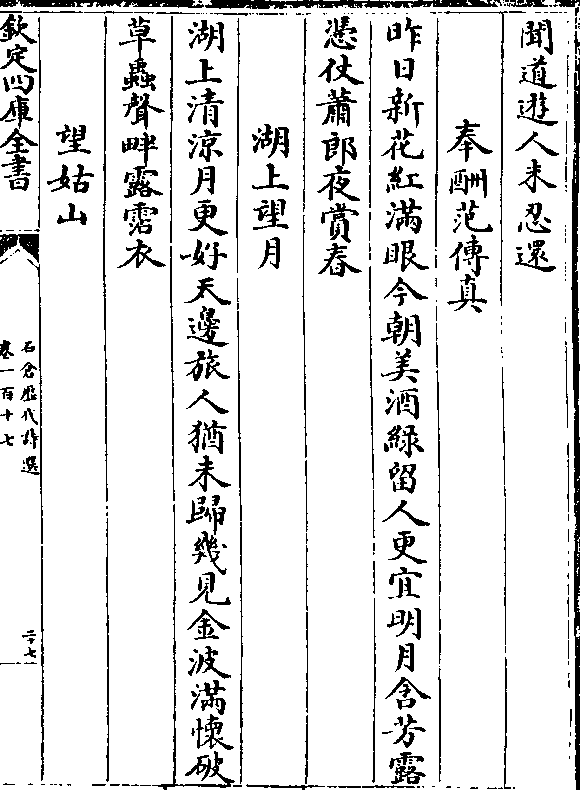 聞道遊人未忍還
奉酬范傳真
昨日新花紅滿眼今朝美酒緑留人更宜明月含芳露
憑仗蕭郎夜賞春
湖上望月
湖上清涼月更好天邊旅人猶未歸幾見金波滿懷破
草蟲聲畔露霑衣
望姑山
欽定四庫全書
石倉歷代詩選
卷一百十七
二十七